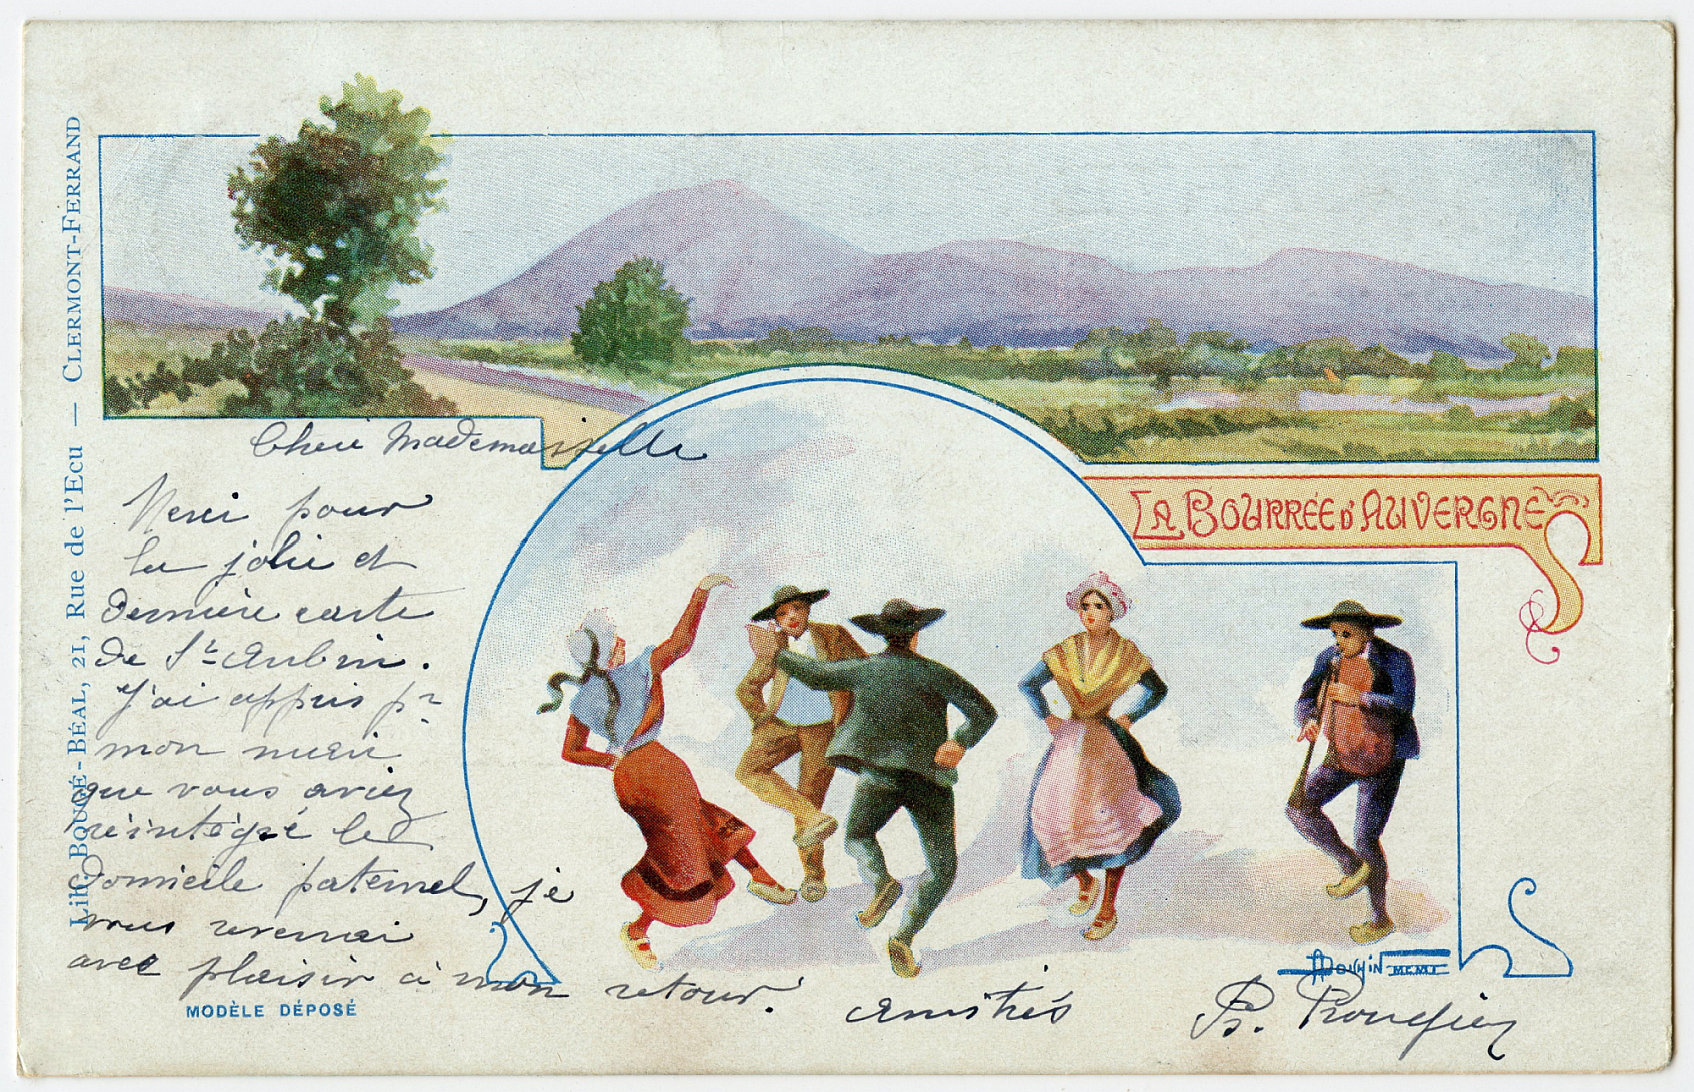 Lib. BOUCÉ-BÉAL, 21, Rue de l'Ecu — CLERMONT-FERRAND
LA BOURRÉE D'AUVERGNE
Cheri Mademoiselle
Merci pour
la jolie et
dernière carte
de St Aubin.
J'ai appris pr
mon mari
que vous aviez
réintégré le
domicile paternel, je
vous reverrai
avec plaisir à mon retour.
Amitiés
MCMI
MODÈLE DÉPOSÉ